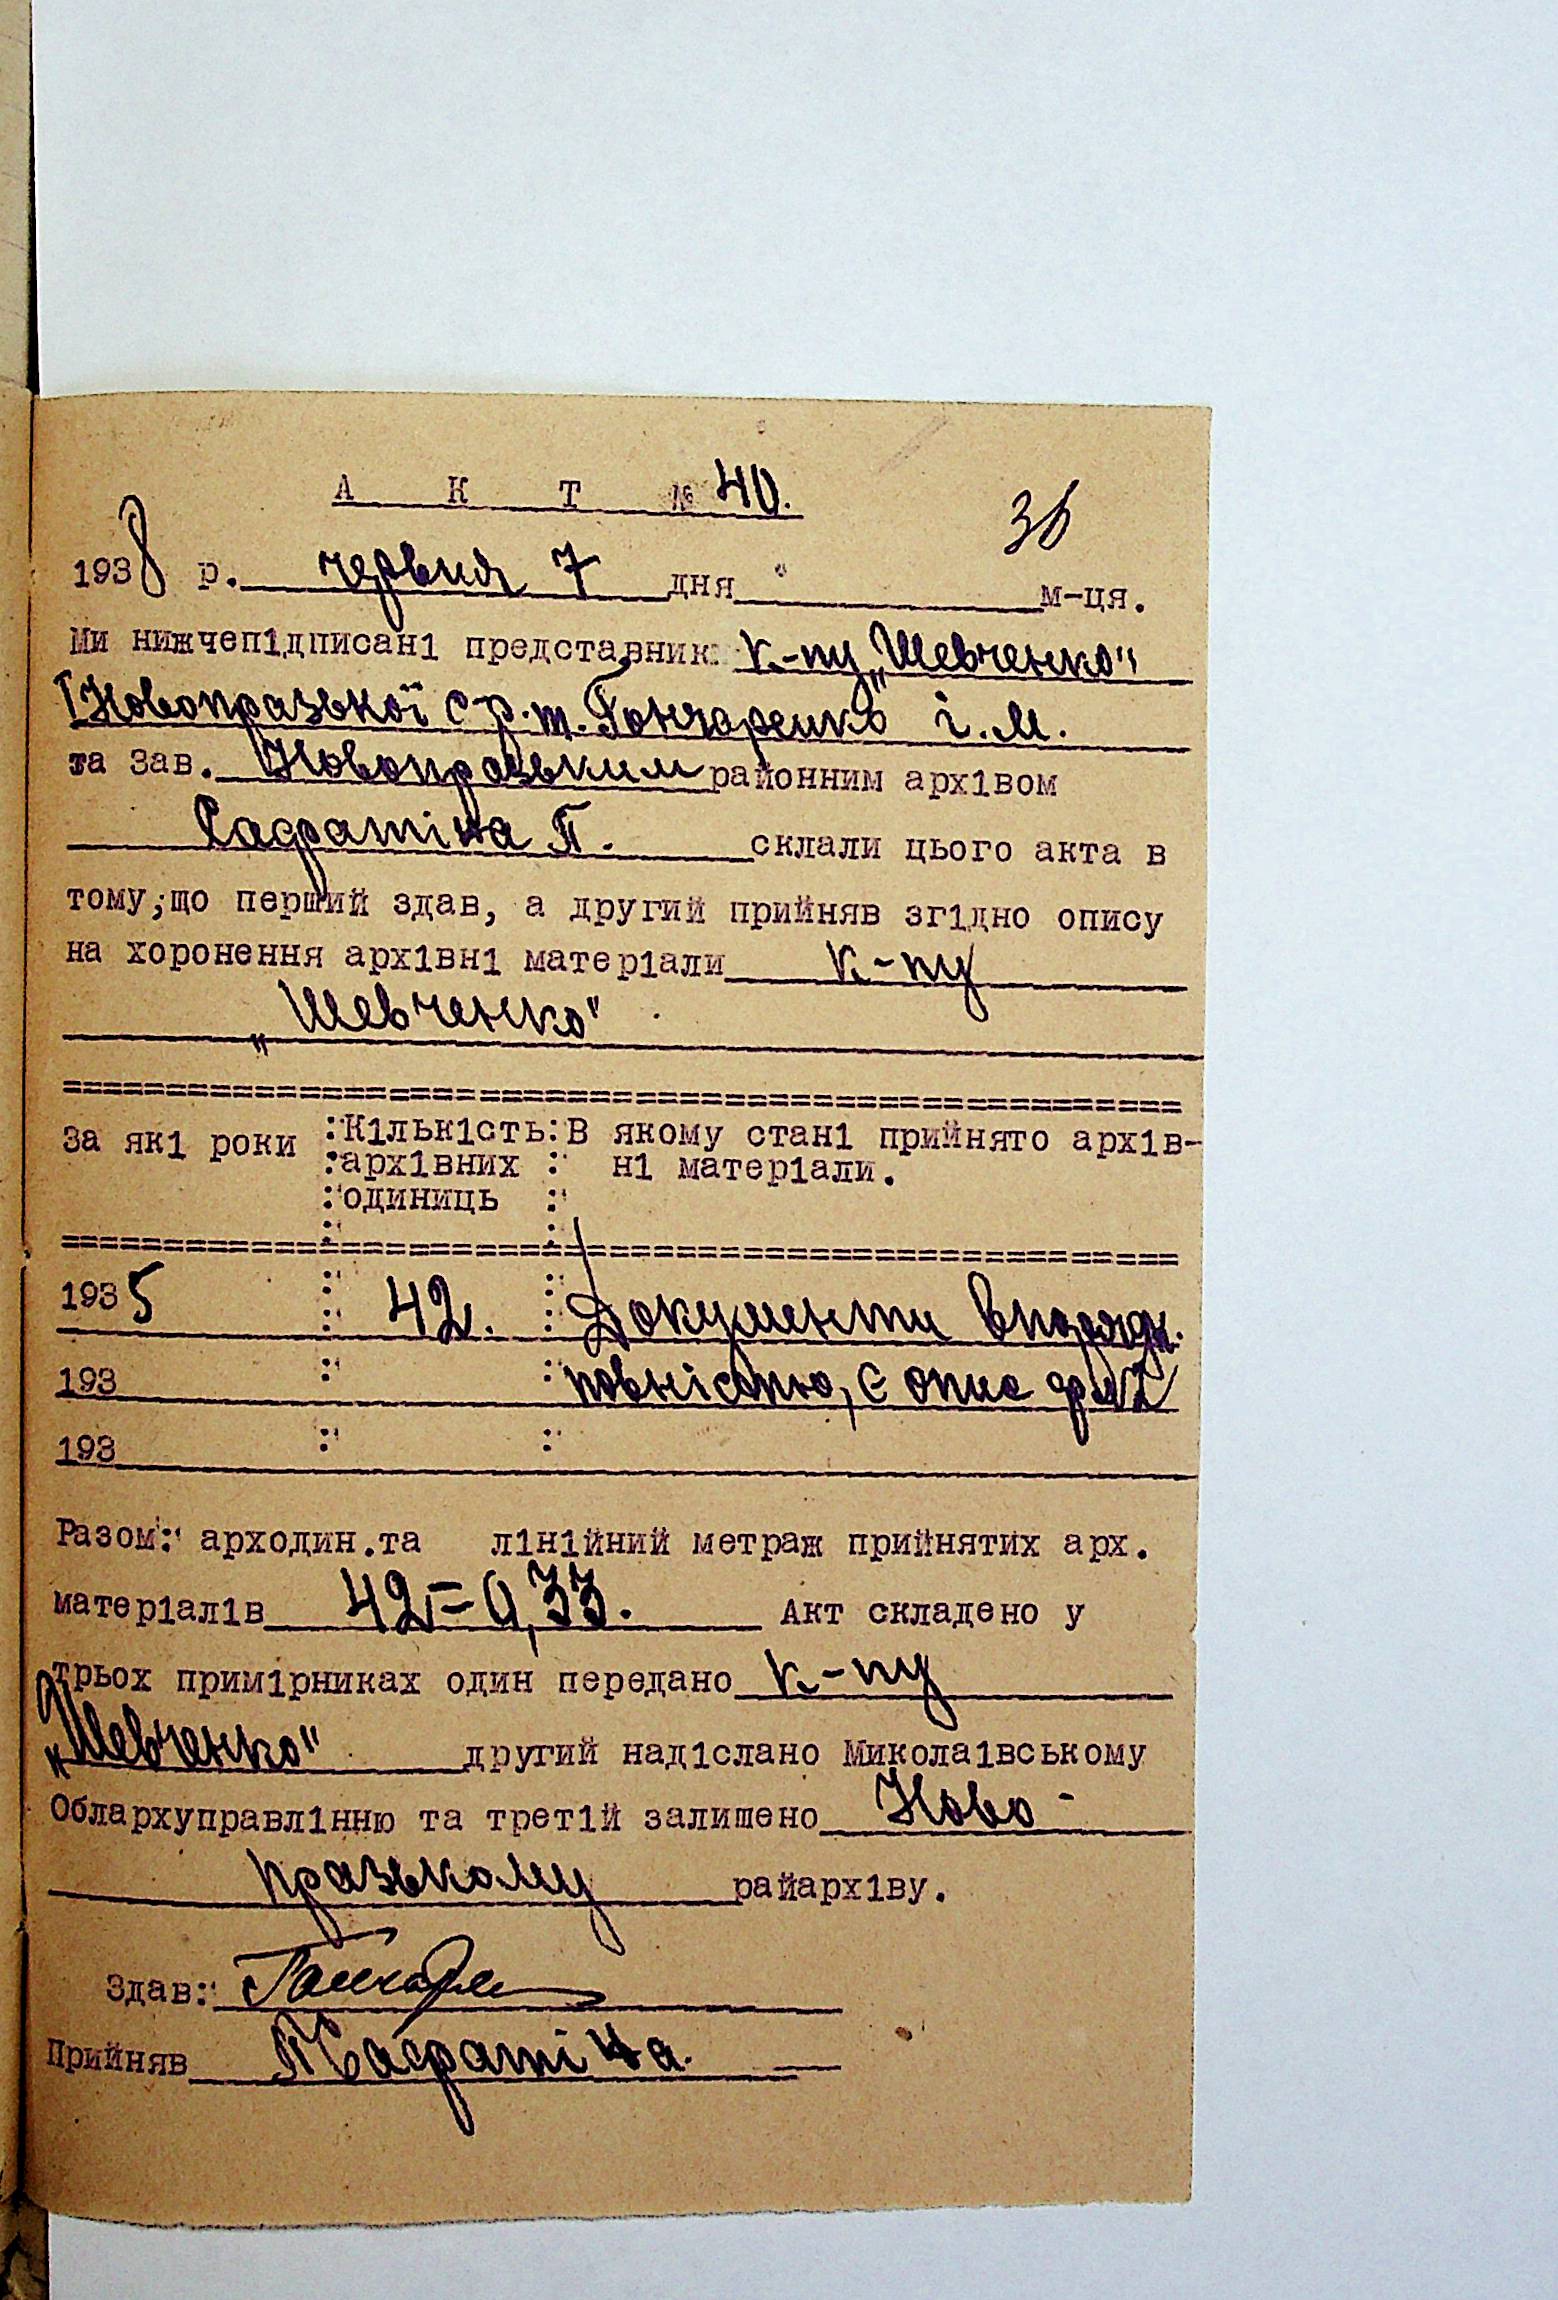 А К Т № 40.
36
1938 р. червня 7 дня м-ця.
Ми нижчепiдписанi представник к-пу „Шевченко"
І Новопразької с-р. т. Гончаренко і. М.
та Зав. Новопразьким районним архiвом
Сафатіна П. склали цього акта в
тому, що перший здав, а другий прийняв згiдно опису
на хоронення архiвнi матерiали к-пу
„Шевченко"
За якi роки : Кiлькiсть : В якому станi прийнято архiв-
: архiвних : нi матерiали.
: одиниць :
1935 : 42. : Документи впорядк.
193 : : повністю, є опис ф№2
193 : :
Разом: арходин.та лiнiйний метраж прийнятих арх.
матерiалiв 42=0,33. Акт складено у
трьох примiрниках один передано к-пу
„Шевченко" другий надiслано Миколаiвському
Облархуправлiнню та третiй залишено Ново-
празькому райархiву.
Здав:
Прийняв ПСафатіна.